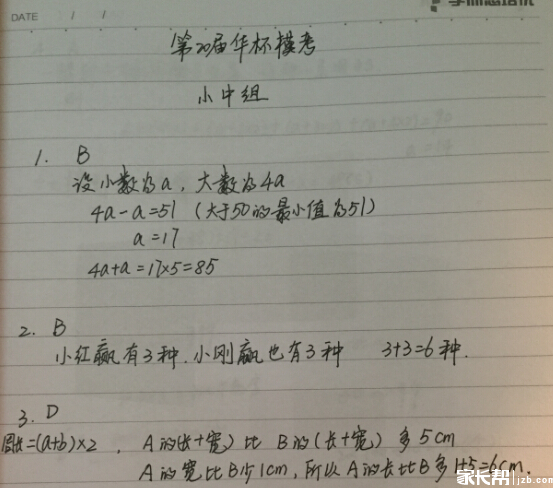 DATE / /
第20届华杯模考
小中组
1. B
设小数为a，大数为4a
4a-a=51 (大于50的最小值为51)
a=17
4a+a=17×5=85
2. B
小红赢有3种.小刚赢也有3种 3+3=6种.
3. D
周长=(a+b)×2，A的(长+宽)比B的(长+宽)多5cm
A的宽比B少1cm，所以A的长比B多1+5=6cm.
家长帮 jzb.com